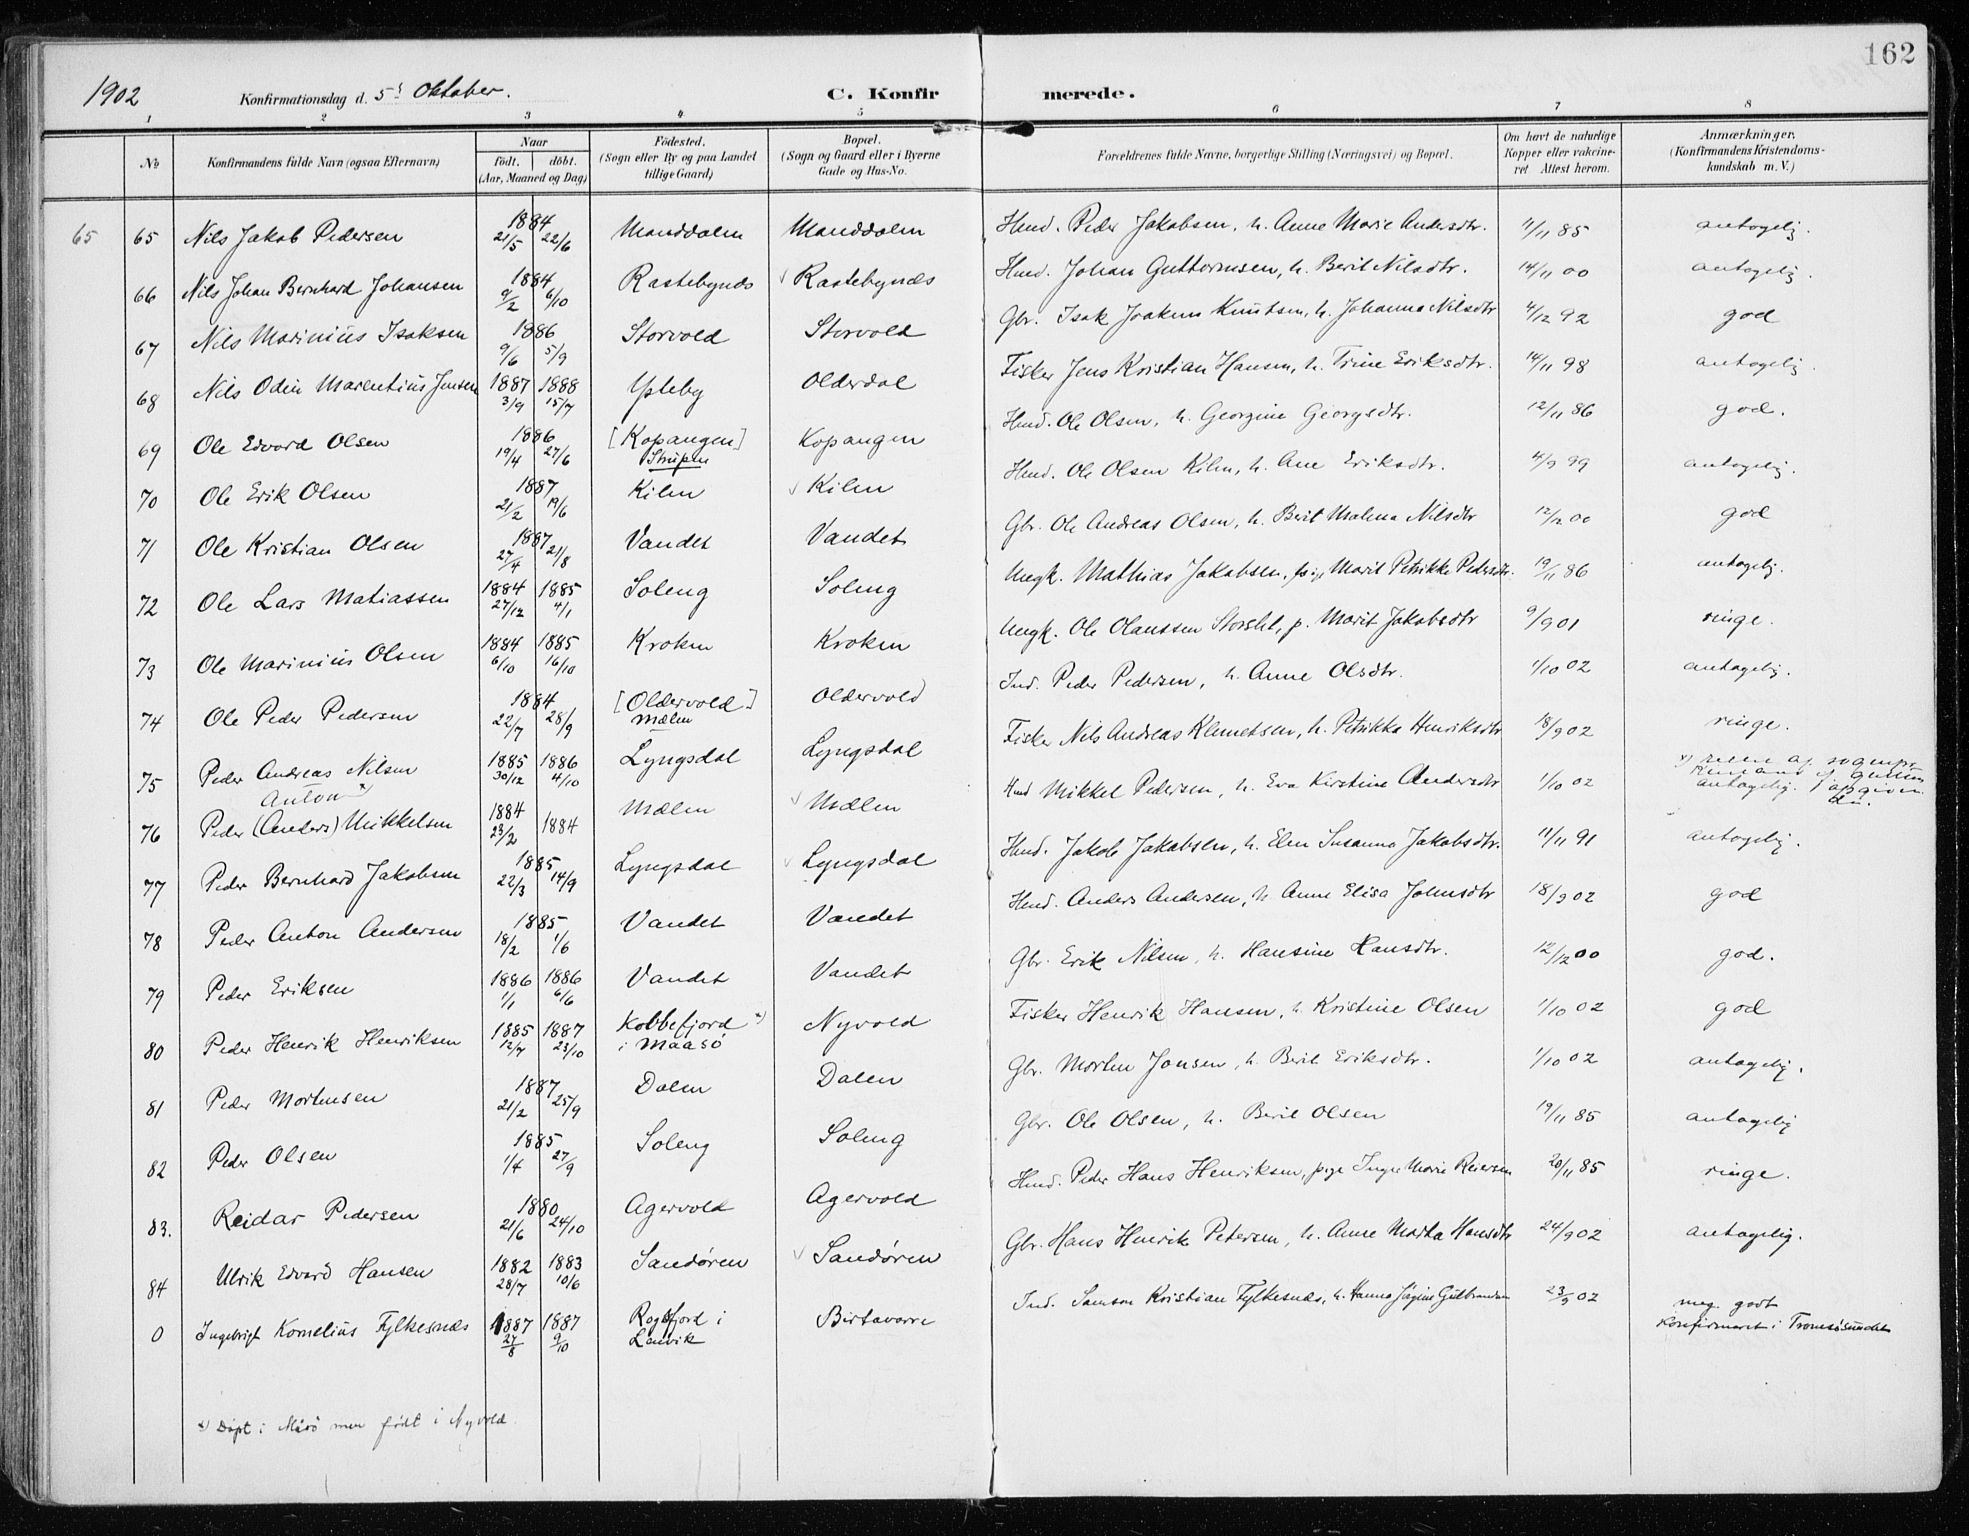 162
1902 Konfirmationsdag d. 5 Oktober. C. Konfirmerede.
1 2 3 4 5 6 7 8
No Konfirmandens fulde Navn (ogsaa Efternavn) Naar født. døbt. (Aar, Maaned og Dag) Fødested. (Sogn eller By og paa Landet tillige Gaard) Bopæl. (Sogn og Gaard eller i Byerne Gade og Hus-No. Forældrenes fulde Navne, borgerlige Stilling (Næringsvei) og Bopæl. Om havt de naturlige Kopper eller vakcineret Attest herom. Anmærkninger. (Konfirmandens Kristendomskundskab m. V.)
65 65 Nils Jakob Pedersen 1884 21/5 22/6 Manddalen Manddalen Hmd. Peder Jakobsen, h. Anne Marie Andersdtr. 11/11 85 antagelig.
66 Nils Johan Bernhard Johansen 1884 9/2 6/10 Rastebynds Rastebynds Hmd. Johan Guttormsen, h. Berit Nilsdtr. 14/11 00 antagelig.
67 Nils Marinius Isaksen 1886 9/6 5/9 Storvold Storvold Gbr. Isak Joakim Knutsen, h. Johanna Nilsdtr 4/12 92 god
68 Nils Odin Marentius Jensen 1887 3/9 1888 15/7 Ysteby Olderdal Fisker Jens Kristian Hansen, h. Trine Eriksdtr. 14/11 98 antagelig.
69 Ole Edvard Olsen 1886 19/4 27/6 [Kopangen] Strupen Kopangen Hmd. Ole Olsen, h. Georgine Georgsdtr. 12/11 86 god.
70 Ole Erik Olsen 1887 21/2 19/6 Kilen Kilen Hmd. Ole Olsen Kilen, h. Ane Eriksdtr. 4/9 99 antagelig.
71 Ole Kristian Olsen 1887 27/4 21/8 Vandet Vandet Gbr. Ole Andreas Olsen, h. Berit Malena Nilsdtr 12/12 00 god
72 Ole Lars Matiassen 1884 27/12 1885 4/1 Soleng Soleng Ungk. Mathias Jakobsen, pige Marit Petrikke Pedersdtr. 19/11 86 antagelig.
73 Ole Marinius Olsen 1884 6/10 1885 16/10 Kroken Kroken Ungk. Ole Olaussen Storslet, p. Marit Jakobsdtr 9/9 01 ringe.
74 Ole Peder Pedersen 1884 22/7 28/9 [Oldervold] Mælen Oldervold Ind. Peder Pedersen, h. Anne Olsdtr. 1/10 02 antagelig.
75 Peder Andreas Nilsen 1885 30/12 1886 4/10 Lyngsdal Lyngsdal Fisker Nils Andreas Klemetsen, h. Petrikka Henriksdtr 18/9 02 ringe.
76 Peder (Anders) Anton x) Mikkelsen 1884 23/2 1884 Mælen Mælen Hmd Mikkel Pedersen, h. Eva Kirstine Andersdtr 1/10 02 antagelig.
77 Peder Bernhard Jakobsen 1885 22/3 14/9 Lyngsdal Lyngsdal Hmd. Jakob Jakobsen, h. Elen Susanna Jakobsdtr. 11/11 91 antagelig.
78 Peder Anton Andersen 1885 18/2 1/6 Vandet Vandet Hmd. Anders Andersen, h. Anne Elisa Johnsdtr 18/9 02 god
79 Peder Eriksen 1886 1/1 1886 6/6 Vandet Vandet Gbr. Erik Nilsen, h. Hansine Hansdtr. 12/12 00 god.
80 Peder Henrik Henriksen 1885 12/7 1887 23/10 Kobbefjord x) i Maasø Nyvold Fisker Henrik Hansen, h. Kristine Olsen 1/10 02 god
81 Peder Mortensen 1887 21/2 25/9 Dalen Dalen Gbr. Morten Jonsen, h. Berit Eriksdtr. 1/10 02 antagelig.
82 Peder Olsen 1885 1/4 27/9 Soleng Soleng Gbr. Ole Olsen, h. Berit Olsen 19/11 85 antagelig
83. Reidar Pedersen 1880 21/6 24/10 Agervold Agervold Hmd. Peder Hans Henriksen, pige Inger Marie Reiersen 20/11 85 ringe.
84 Ulrik Edvard Hansen 1882 28/7 1883 10/6 Sandøren Sandøren Gbr. Hans Henrik Petersen, h. Anne Marta Hansdtr 24/9 02 antagelig.
0 Ingebrigt Kornelius Fylkesnæs 1887 27/8 1887 9/10 Rogsfjord i Lenvik Birtavarre Ind. Samson Kristian Fylkesnæs, h. Hanna Jørgine Gulbrandsen 23/9 02 meg. godt Konfirmeret i Tromsøsundet
x) Døpt i Måsø men født i Nyvold.